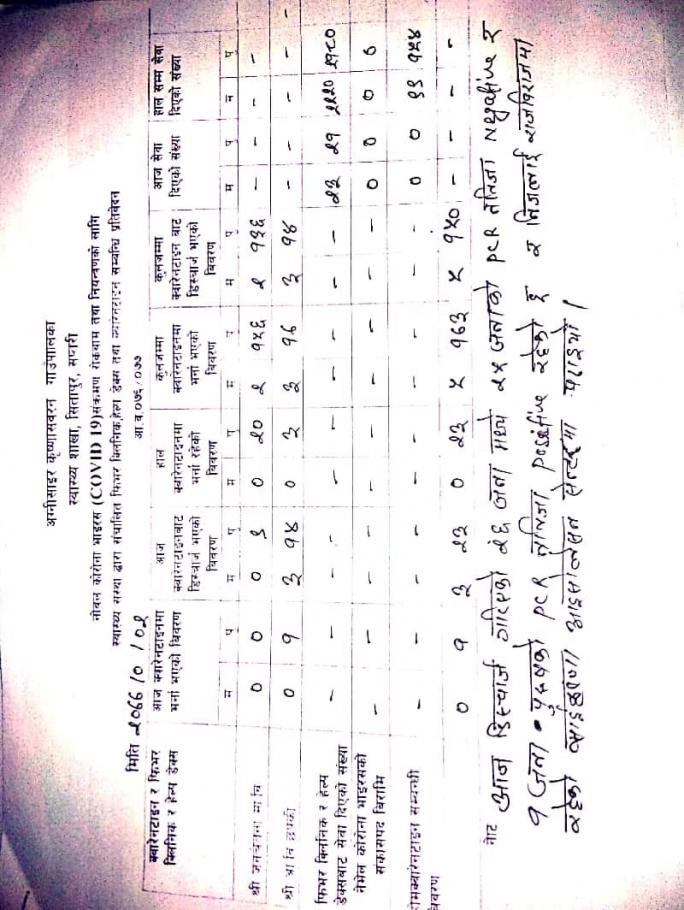 अग्नीसाइर कृष्णासवरन गाउँपालिका
स्वास्थ्य शाखा, सितापुर, सप्तरी
नोवल कोरोना भाइरस (COVID 19) संक्रमण रोकथाम तथा नियन्त्रणको लागि
स्वास्थ्य संस्था द्वारा संचालित फिभर क्लिनिक, हेल्प डेक्स तथा क्वारेनटाइन सम्बन्धि प्रतिवेदन
आ.व.०७६/०७७
मिति
क्वारेनटाइन र फिभर क्लिनिक र हेल्प डेक्स | आज क्वारेनटाइनमा भर्ना भएको विवरण | आज क्वारेनटाइनबाट डिस्चार्ज भएको विवरण | हाल क्वारेनटाइनमा भर्ना रहेको विवरण | कुलजम्मा क्वारेनटाइनमा भर्ना भएको विवरण | कुलजम्मा क्वारेनटाइन बाट डिस्चार्ज भएको विवरण | आज सेवा दिएको संख्या | हाल सम्म सेवा दिएको संख्या
म पु म पु म पु म पु म पु म पु म पु
श्री जनता मावि ० ० ० ९ ० २० २ १५६ २ १३६ - - - -
श्री प्रा वि ० १ ३ १४ ० ३ ३ १६ ३ १४ - - - -
फिभर क्लिनिक र हेल्प डेक्सबाट सेवा दिएको संख्या - - - - - - - - - - २३ २१ २२२० २१८०
नोभेल कोरोना भाइरसको संकास्पद बिरामि - - - - - - - - - - ० ० ० ०
होमक्वारेनटाइन सम्बन्धी विवरण - - - - - - - - - - ० ० ९९ १५४
० १ ३ २३ ० २३ ५ १७३ ५ १५० - - - -
नोट आज डिस्चार्ज गरिएको २६ जना मध्ये २५ जनाको PCR नतिजा negative र
१ जना पुरुषको PCR नतिजा positive रहेको छ र निजलाई राजविराजमा
रहेको आइसोलेसन सेन्टरमा पठाइयो।